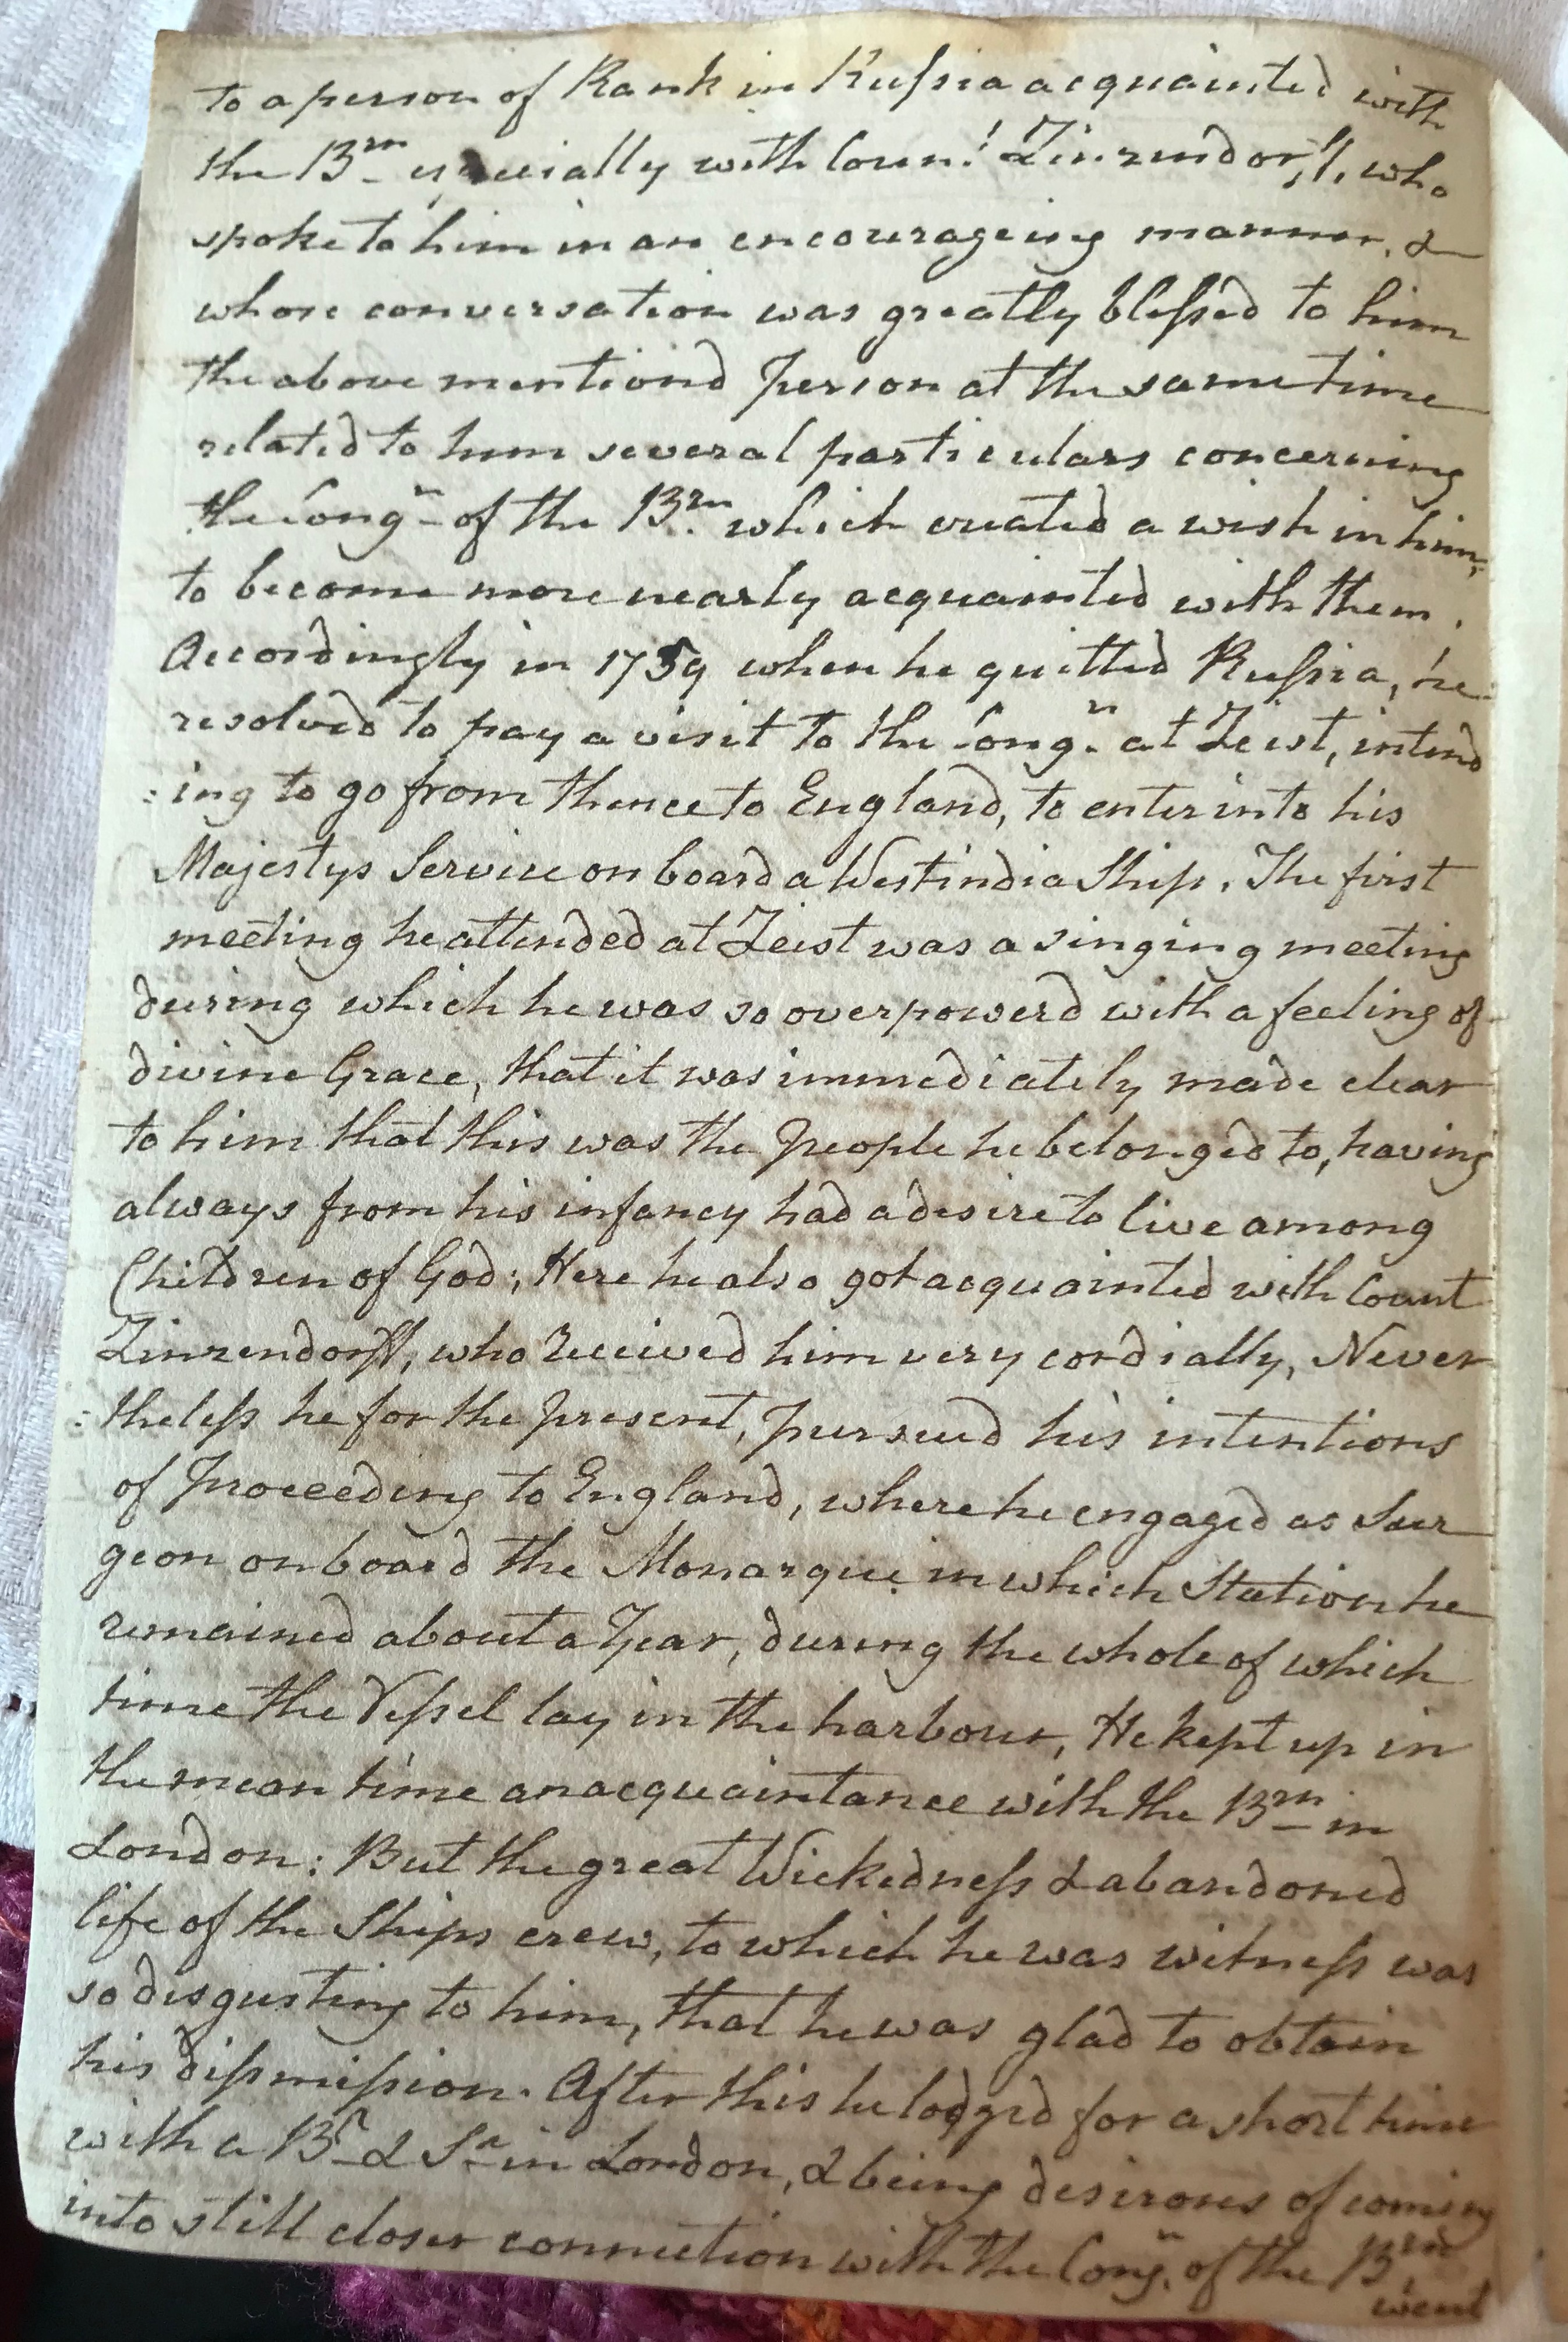 to a person of Rank in Russia acquainted with
the Brn especially with Count Zinzendorff, who
spoke to him in an encourageing manner, &
whose conversation was greatly blessed to him
the above mentiond person at the same time
related to him several particulars concerning
the Congn of the Brn which created a wish in him,
to become more nearly acquainted with them.
Accordingly in 1759 when he quitted Russia, he
resolved to pay a visit to the Congn at Zeist, intend
:ing to go from thence to England, to enter into his
Majestys Service on board a Westindia Ship. The first
meeting he attended at Zeist was a singing meeting
during which he was so overpowerd with a feeling of
divine Grace, that it was immediately made clear
to him that this was the People he belonged to, having
always from his infancy had a desire to live among
Children of God; Here he also got acquainted with Count
Zinzendorff, who received him very cordially, Never
:theless he for the present, pursued his intentions
of Proceeding to England, where he engaged as Sur
geon on board the Monarque in which Station he
remained about a Year, during the whole of which
time the Vessel lay in the harbour, He kept up in
the mean time an acquaintance with the Brn in
London: But the great Wickedness & abandoned
life of the Ships crew, to which he was witness was
so disgusting to him, that he was glad to obtain
his dissmission. After this he lodged for a short time
with a Br & Sr in London, & being desirous of coming
into still closer connection with the Congn of the Brn
went